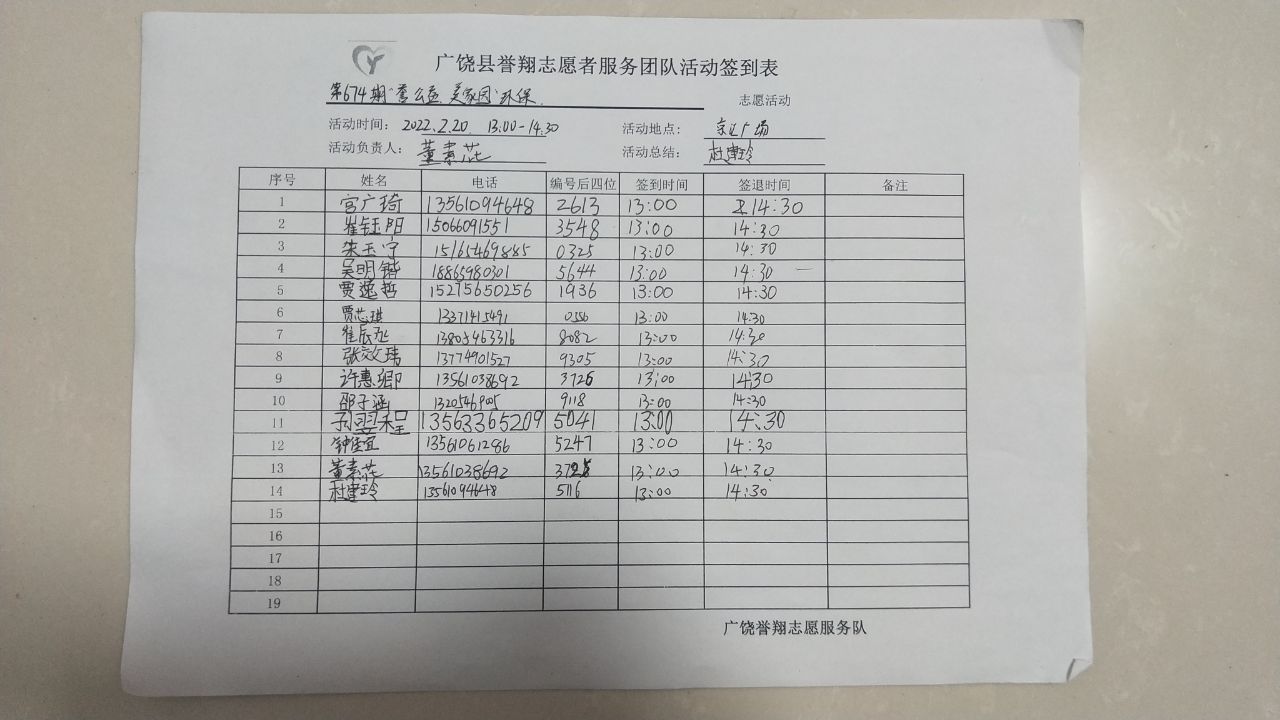 广饶县誉翔志愿者服务团队活动签到表
第674期"爱公益 美家园"环保 志愿活动
活动时间: 2022.2.20 13:00-14:30 活动地点: 广场
活动负责人: 董素花 活动总结: 杜建玲
序号 姓名 电话 编号后四位 签到时间 签退时间 备注
1 宫广琦 13561094648 2613 13:00 14:30
2 崔钰阳 15066091551 3548 13:00 14:30
3 朱玉宁 15165469885 0325 13:00 14:30
4 吴明锴 18865980301 5644 13:00 14:30
5 贾逸哲 15275650256 1936 13:00 14:30
6 贾芯琪 13371415491 0556 13:00 14:30
7 崔辰丞 13805463316 8082 13:00 14:30
8 张效玮 13774901527 9305 13:00 14:30
9 许惠卿 13561038692 3726 13:00 14:30
10 邵子涵 9118 13:00 14:30
11 13563365209 5041 13:00 14:30
12 钟佳宜 13561061286 5247 13:00 14:30
13 董素花 13561038692 13:00 14:30
14 杜建玲 13561094648 5116 13:00 14:30
15
16
17
18
19
广饶誉翔志愿服务队